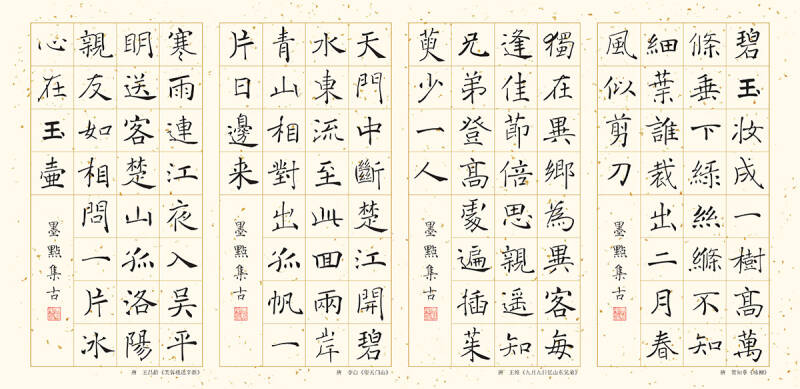 碧玉妝成一樹高萬
條垂下綠絲縧不知
細葉誰裁出二月春
風似剪刀
墨點集古
唐 贺知章《咏柳》
獨在異鄉為異客每
逢佳節倍思親遥知
兄弟登高處遍插茱
萸少一人
墨點集古
唐 王维《九月九日忆山东兄弟》
天門中斷楚江開碧
水東流至此回兩岸
青山相對出孤帆一
片日邊来
墨點集古
唐 李白《望天门山》
寒雨連江夜入吴平
明送客楚山孤洛陽
親友如相問一片冰
心在玉壺
墨點集古
唐 王昌龄《芙蓉楼送辛渐》